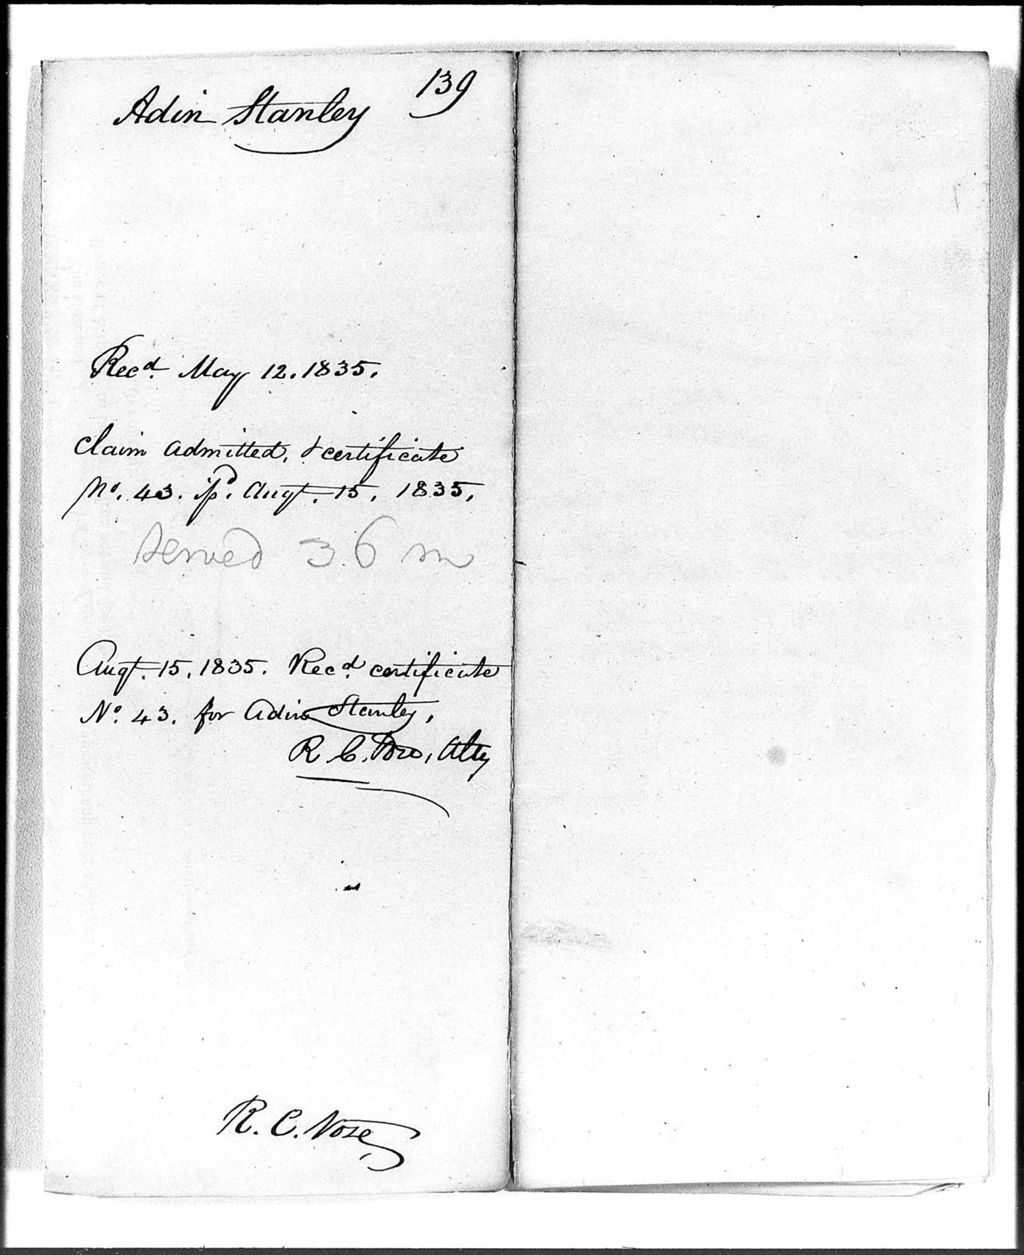 139
Adin Stanley
Recd. May 12. 1835.
Claim admitted, & certificate
No. 43. Augt. 15, 1835.
Served 36 m
Augt. 15, 1835. Recd. certificate
No. 43. for Adin Stanley,
R. C. Vose, Atty
R. C. Vose